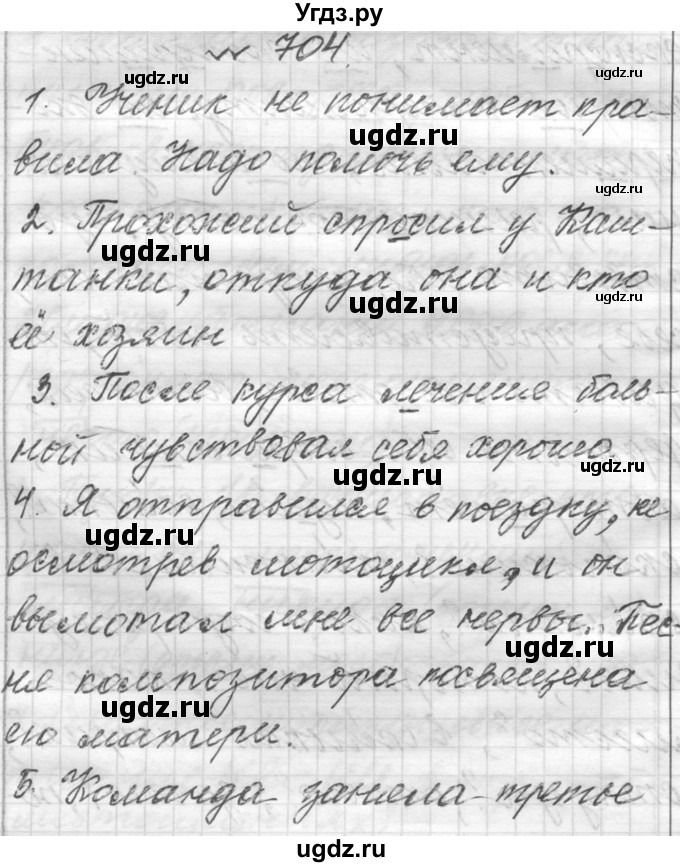 Угдз.ру
№ 704
ugdz.ru ugdz.ru
1. Ученик не понимает пра-
ugdz.ru
вила. Надо помочь ему.
ugdz.ru
2. Прохожий спросил у Каш-
ugdz.ru
танки, откуда она и кто
ugdz.ru
её хозяин
3. После курса лечение боль-
ugdz.ru
ной чувствовал себя хорошо.
ugdz.ru
4. Я отправился в поездку, не
ugdz.ru
осмотрев мотоцикл, и он
вымотал мне все нервы. Пес-
ugdz.ru
ня композитора посвящена
ugdz.ru
его матери.
ugdz.ru
5. Команда заняла третье
ugdz.ru